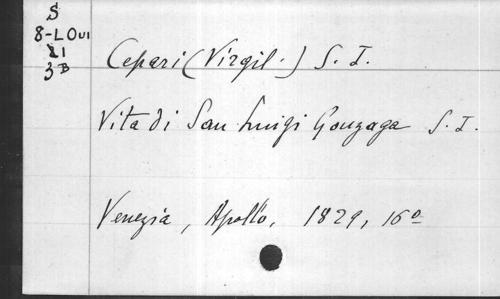 S
8-LOUI
21
3B
Cepari (Virgil.) S. I.
Vita di San Luigi Gonzaga S. I.
Venezia, Apollo, 1829, 16o